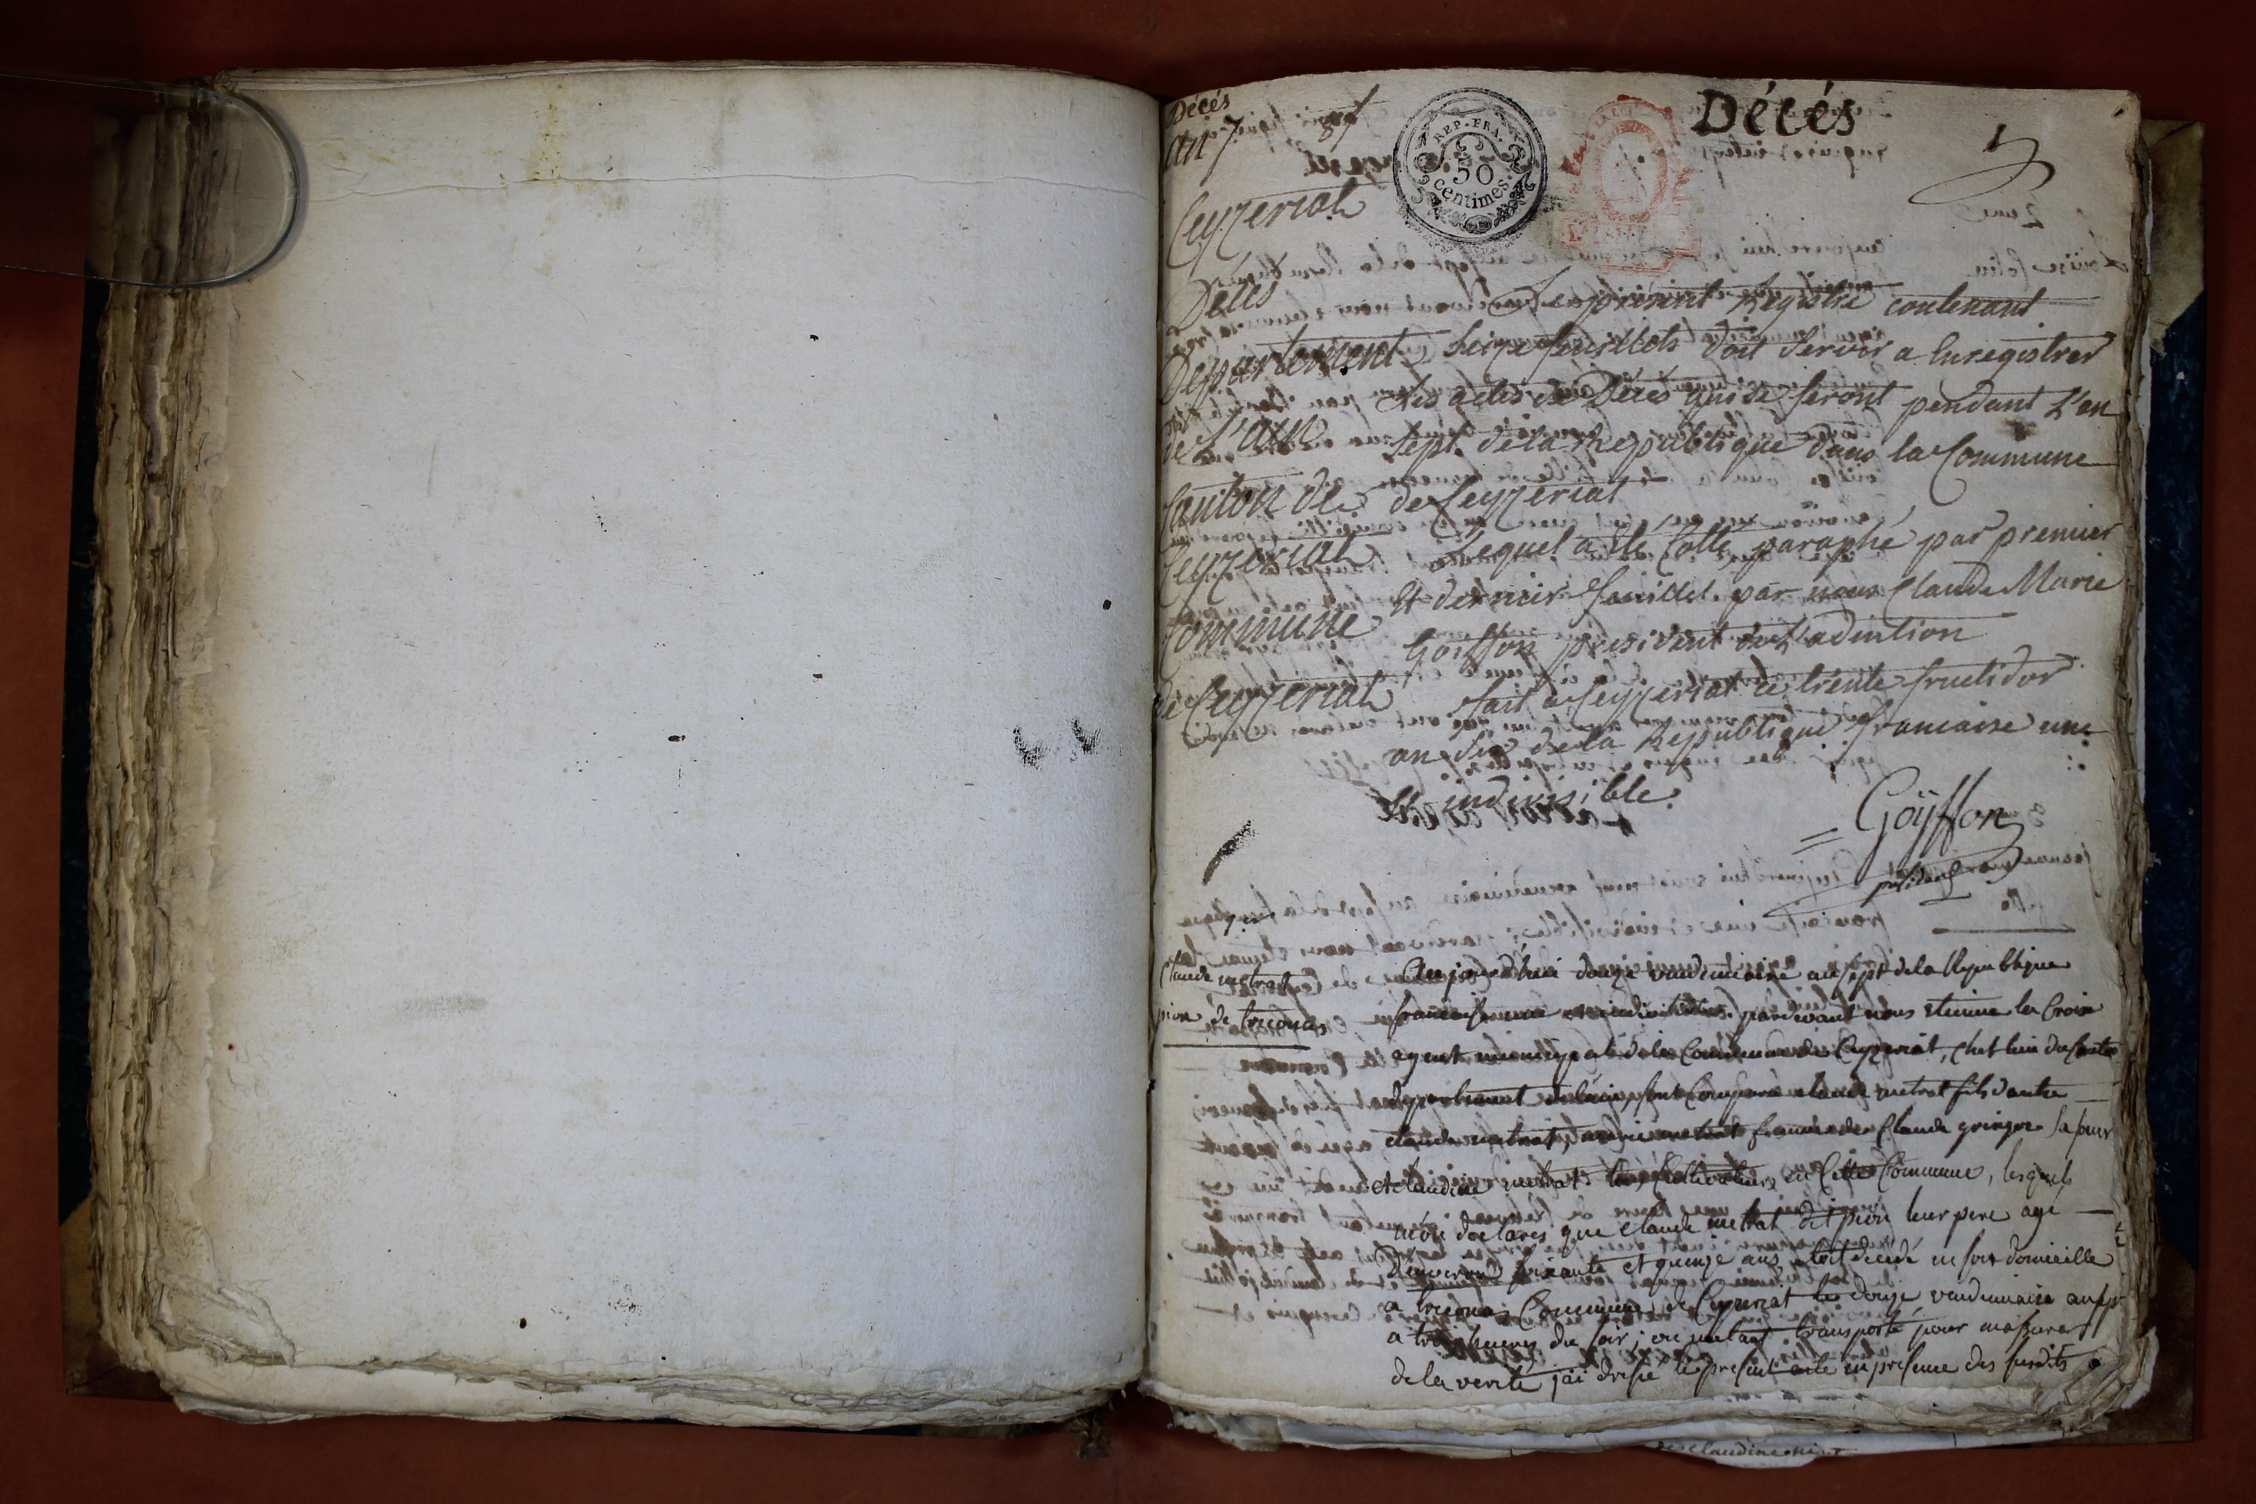 Décès
an 7
Décès
REP. FRA.
50
centimes.
Ceyzeriat
Décès
Département
de L'ain
Canton de
Ceyzeriat
Commune
de Ceyzeriat
Le présent Registre contenant
Seize feuillets doit Servir a Enregistrer
Les actes de Décès qui se feront pendant L'an
Sept de la Republique dans la Commune
de Ceyzeriat
Lequel a été Cotté paraphé par premier
Et dernier feuillet par nous Claude Marie
Goiffon président de L'adm̃tion
fait a Ceyzeriat ce trente fructidor
an Six de la Republique francaise une
Et indivisible.
Goÿffon
président
Claude metrat
pion de trecona
Aujourd'hui douze vendemiaire an sept de la Republique
francaise une et indivisible pardevant nous etienne la Croix
agent municipal de la Commune de Ceyzeriat, chef lieu de Canton
departement de l'ain, sont Comparu claude metrat fils d'autre
claude metrat, metrat femme de Claude gringoz sa sœur
et claudine metrat tous Cultivateurs en Cette Commune, lesquels
m'ont declarés que claude metrat dit pion leur pere agé
D'environ soixante et quinze ans, etoit decedé en son domicille
a treconas Commune de Ceyzeriat le douze vendemiaire an sept
a trois heures du soir, ou m'etant transporté pour m'assurer
de la verité j'ai dressé le present acte en presence des susdits